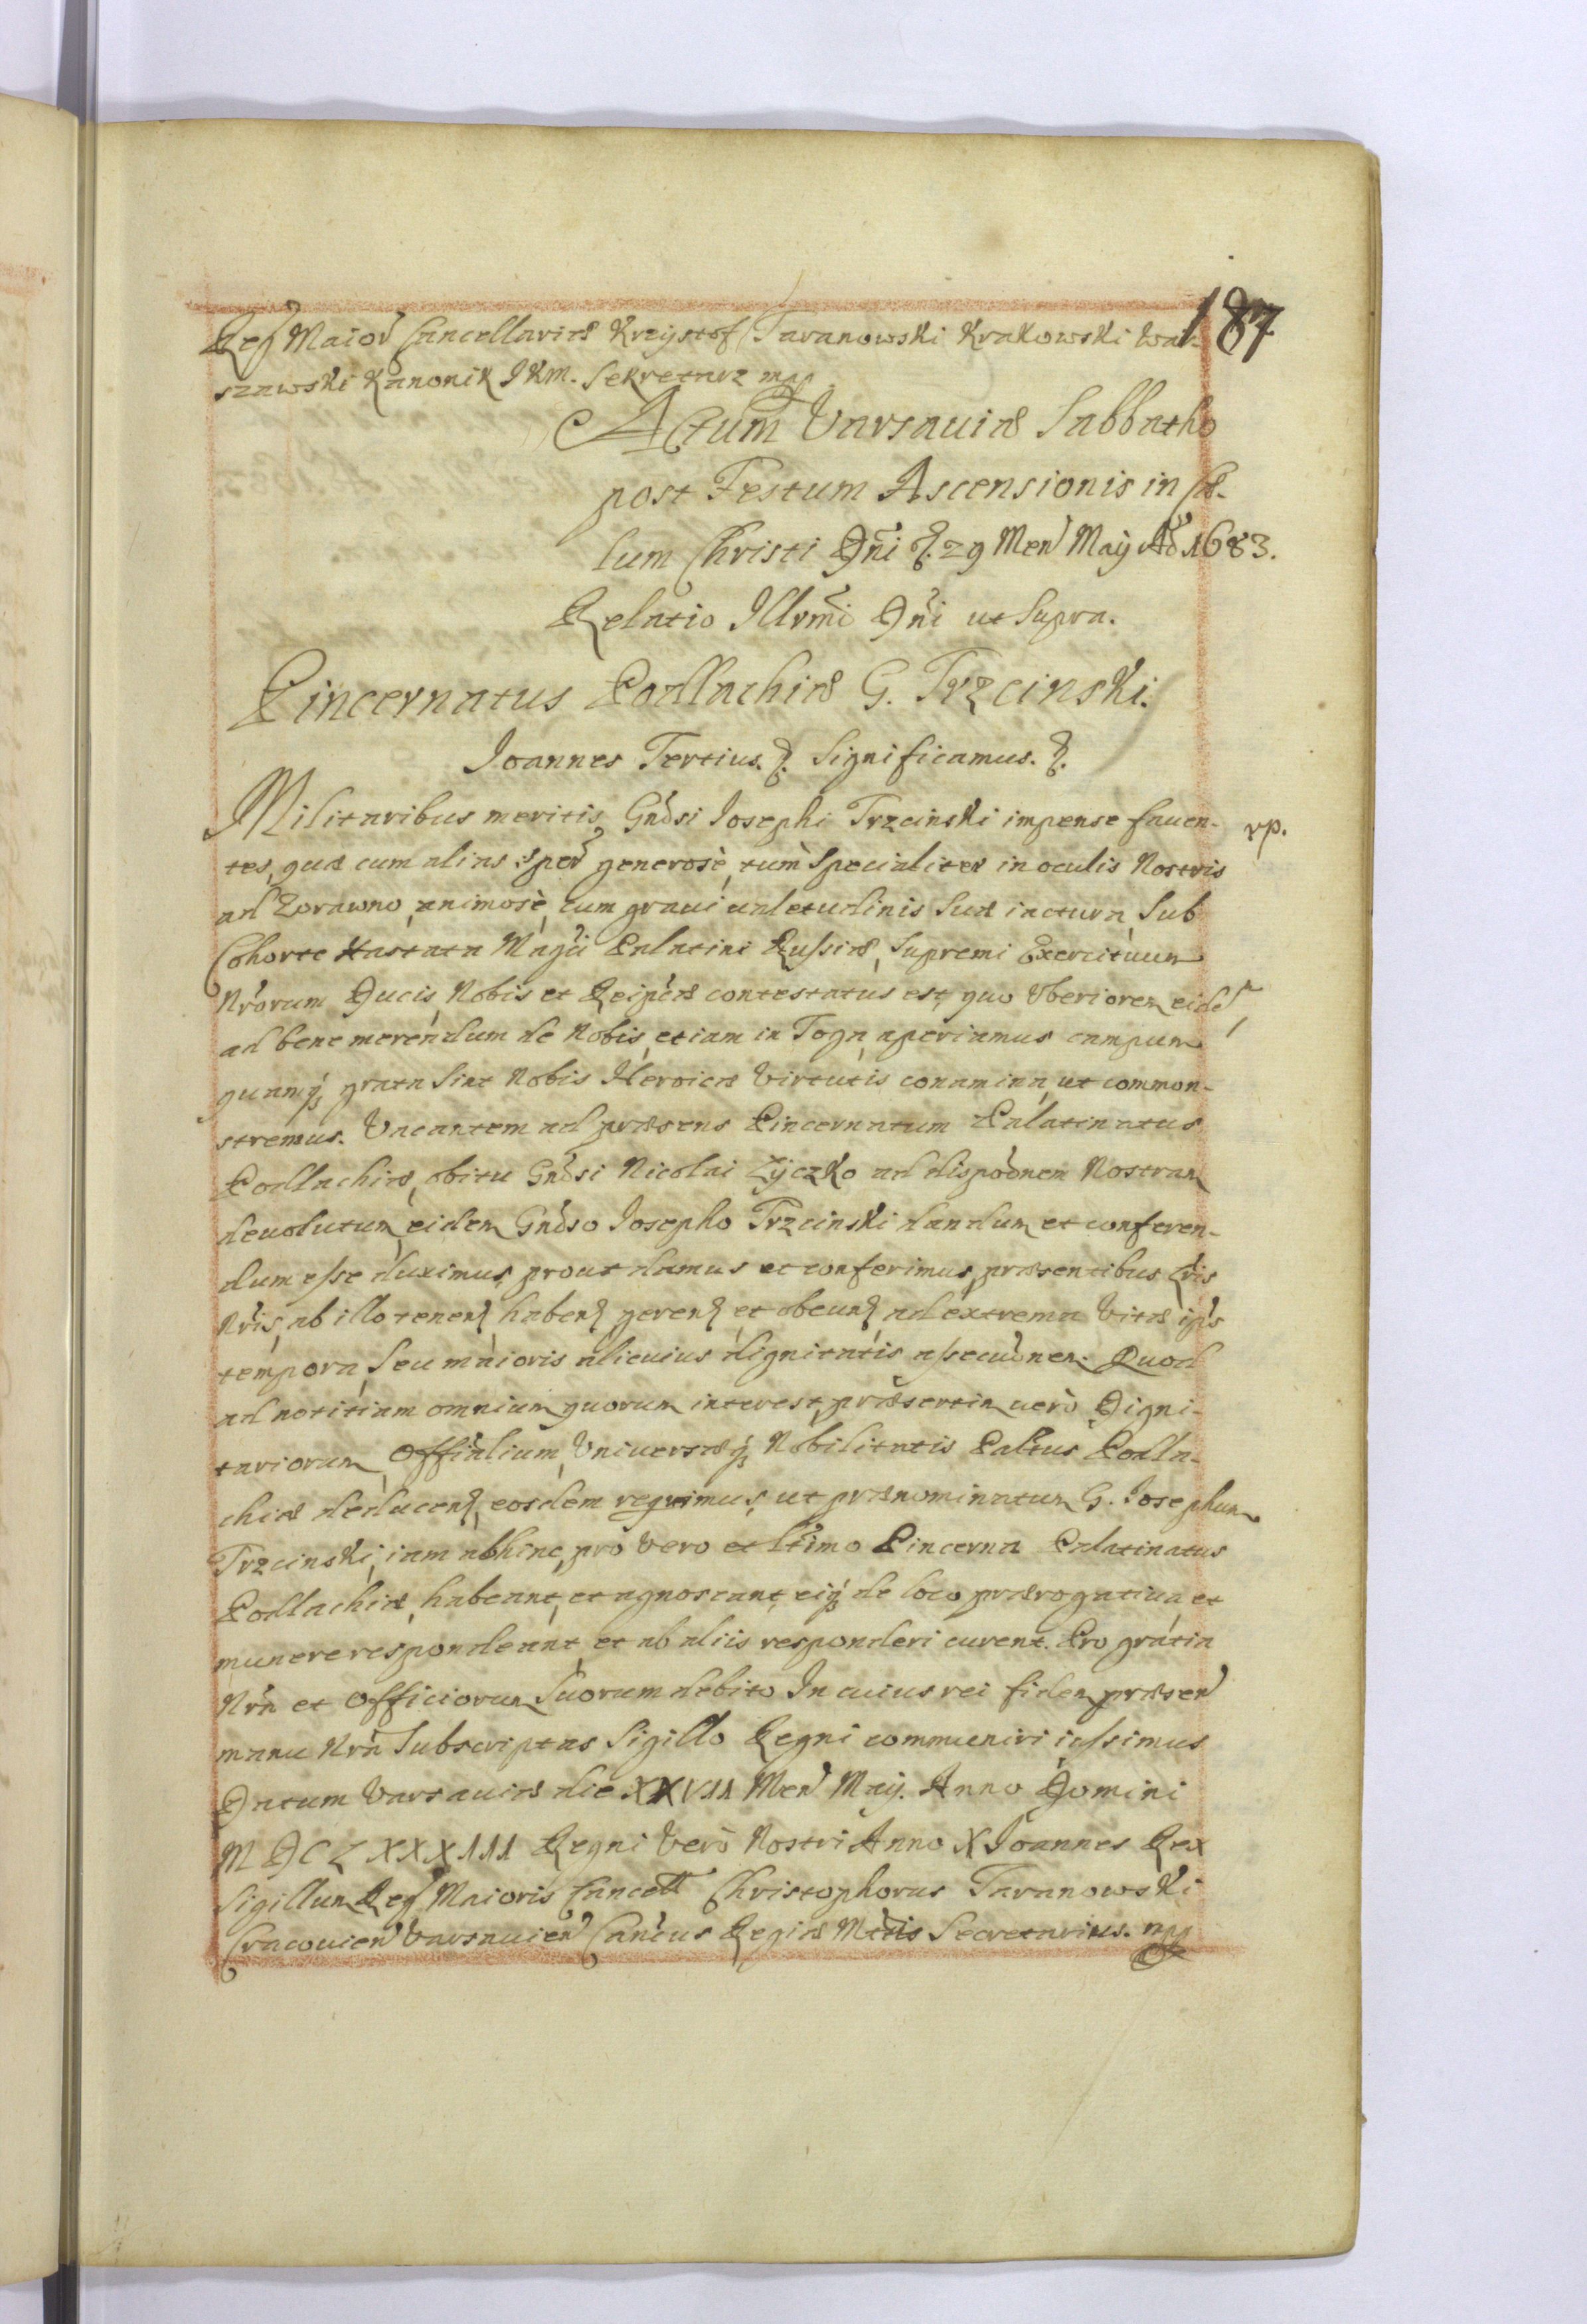 187
Reg Maior Cancellariæ Krzysztof Taranowski Krakowski War-
szawski Kanonik JKM. Sekretarz mp
Actum Varsauiæ Sabbatho
post Festum Ascensionis in Cæ-
lum Christi Dni &. 29 Men Maij Ao 1683.
Relatio Illrmi Dni ut Supra.
Pincernatus Podlachiæ G. Trzcinski.
Ioannes Tertius. &. Significamus. &.
Militaribus meritis Gnosi Iosephi Trzcinski impense fauen- rp.
tes, quæ cum alias sper generosè, tum Specialiter in oculis Nostris
ad Zorawno, animosè, cum graui ualetudinis Suæ iactura, Sub
Cohorte Hastata Magci Palatini Russiæ, Supremi Exercituum
Nrorum Ducis, Nobis et Reipcæ contestatus est, quo Vberiorem eide
ad bene merendum de Nobis, etiam in Toga, aperiamus campum
quamq grata Sint Nobis Heroicæ Virtutis conamina, ut common-
stremus. Vacantem ad præsens Pincernatum Palatinatus
Podlachiæ, obitu Gnosi Nicolai Zyczko ad dispoonem Nostram
deuolutum, eidem Gnoso Iosepho Trzcinski dandum et conferen-
dum esse duximus, prout damus et conferimus, præsentibus Lris
Nris, ab illo tenen haben geren et obeun ad extrema Vitæ ips
tempora, Seu maioris alicuius dignitatis assecuonem. Quod
ad notitiam omnium quorum interest, præsertim uerò Digni-
tariorum, Offialium, Vniuersæq Nobilitatis Paltus Podla-
chiæ deducen, eosdem requirimus, ut prænominatum G. Iosephum
Trzcinski, iam abhinc, pro Vero et Ltimo Pincerna Palatinatus
Podlachiæ, habeant, et agnoscant, eiq de loco prærogatiua, et
munere respondeant, et ab aliis responderi curent. Pro gratia
Nra et Officiorum Suorum debito In cuius rei fidem præsen
manu Nra Subscriptas Sigillo Regni communiri iussimus
Datum Varsauiæ die XXVII Men Maij. Anno Domini
MDCLXXXIII Regni Verò Nostri Anno X Ioannes Rex
Sigillum Reg Maioris Cancell Christophorus Taranowski
Cracouien Varsauien Cancus Regiæ Mttis Secretarius. mp